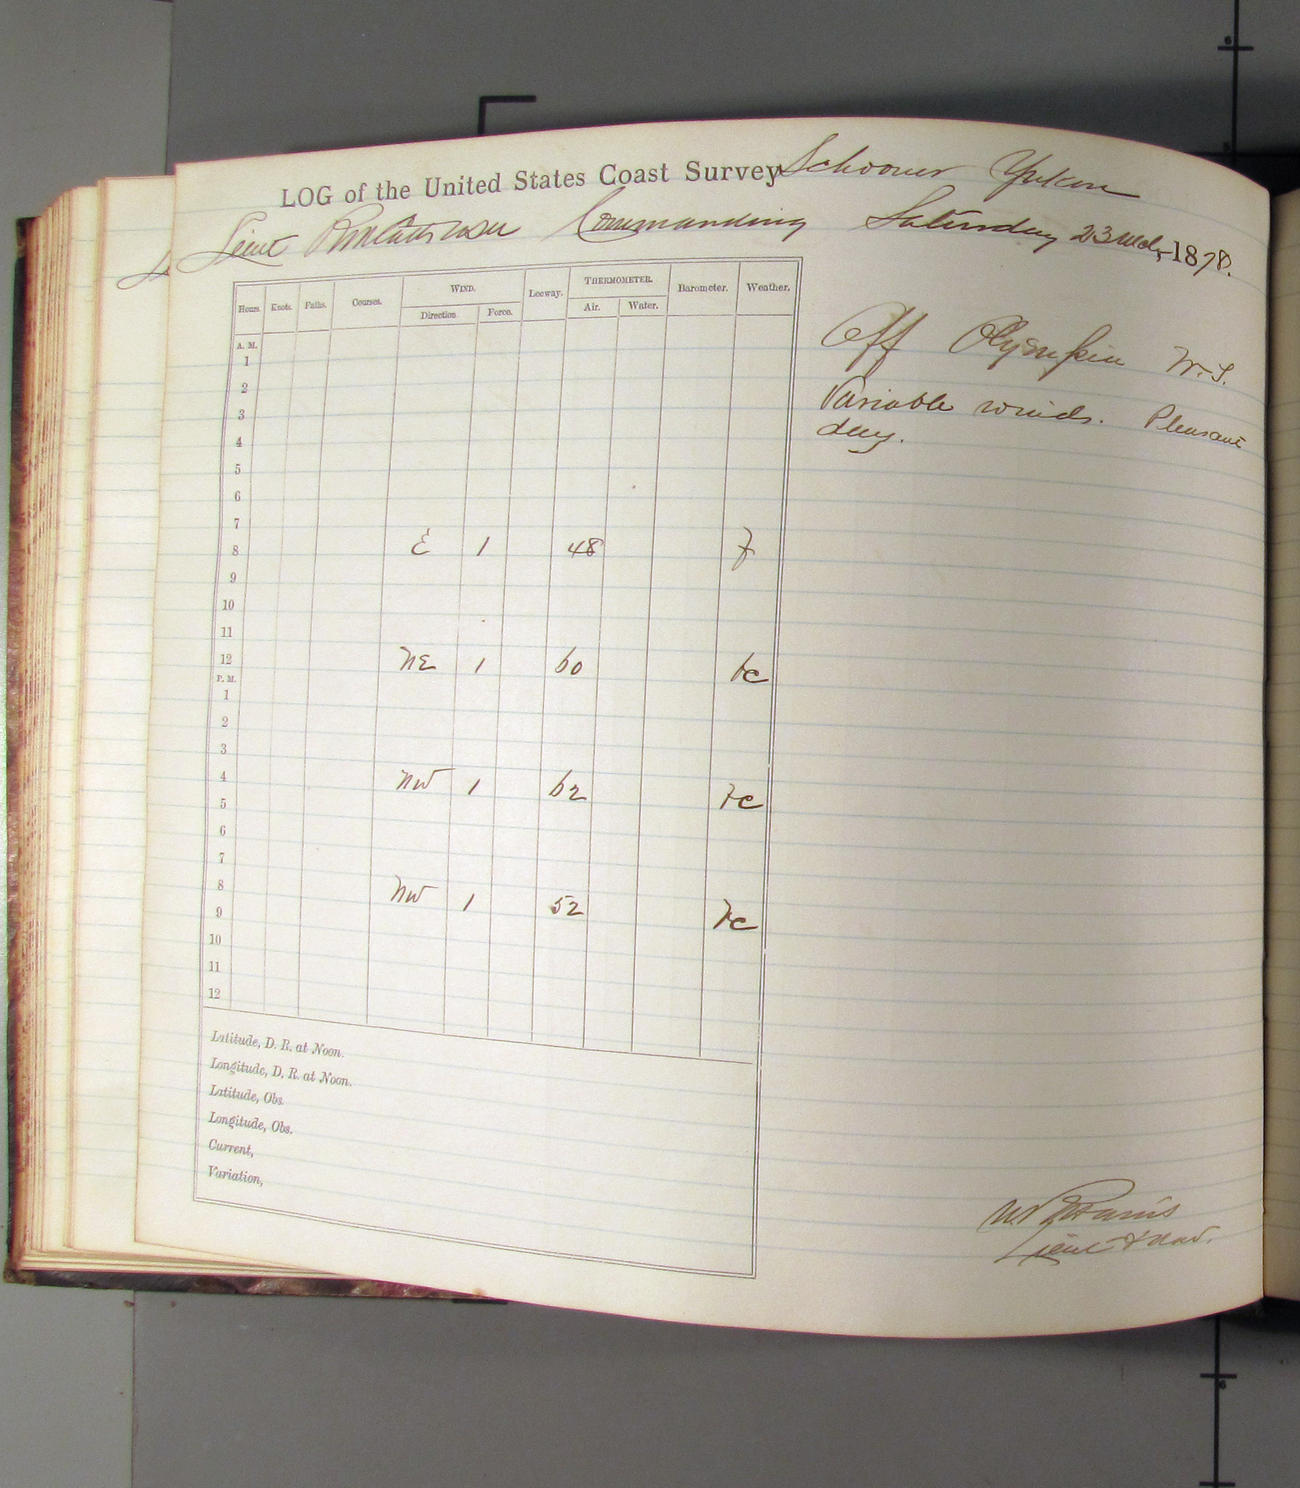 LOG of the United States Coast Survey Schooner Yukon
Lieut Commanding Saturday 23 1878.
Hours. Knots. Faths. Courses. WIND. Leeway. THERMOMETER. Barometer. Weather.
Direction. Force. Air. Water.
A. M.
1
2
3
4
5
6
7
8 E 1 48 f
9
10
11
12 NE 1 60 bc
P. M.
1
2
3
4 NW 1 62 bc
5
6
7
8 NW 1 52 bc
9
10
11
12
Latitude, D. R. at Noon.
Longitude, D. R. at Noon.
Latitude, Obs.
Longitude, Obs.
Current,
Variation,
Off Olympia W. T.
Variable winds. Pleasant
day.
Lieut & Nav.